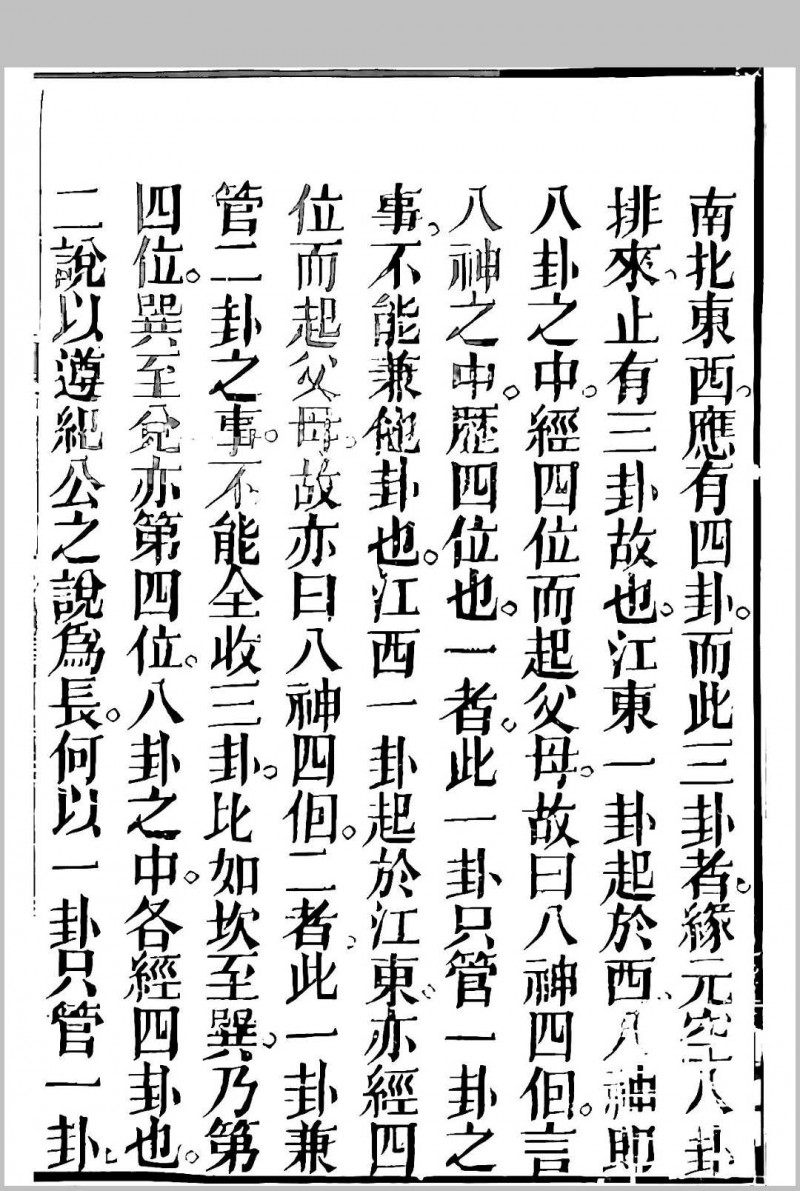 南北東西。應有四卦。而此三卦者。緣元空八卦
排來。止有三卦故也。江東一卦起於西。八神卽
八卦之中。經四位而起父母。故曰八神四個。言
八神之中。歷四位也。一者。此一卦只管一卦之
事。不能兼他卦也。江西一卦起於江東。亦經四
位而起父母。故亦曰八神四個。二者。此一卦兼
管二卦之事。不能全收三卦。比如坎至巽。乃第
四位。巽至兌亦第四位。八卦之中。各經四卦也。
二說以遵紀公之說爲長。何以一卦只管一卦。